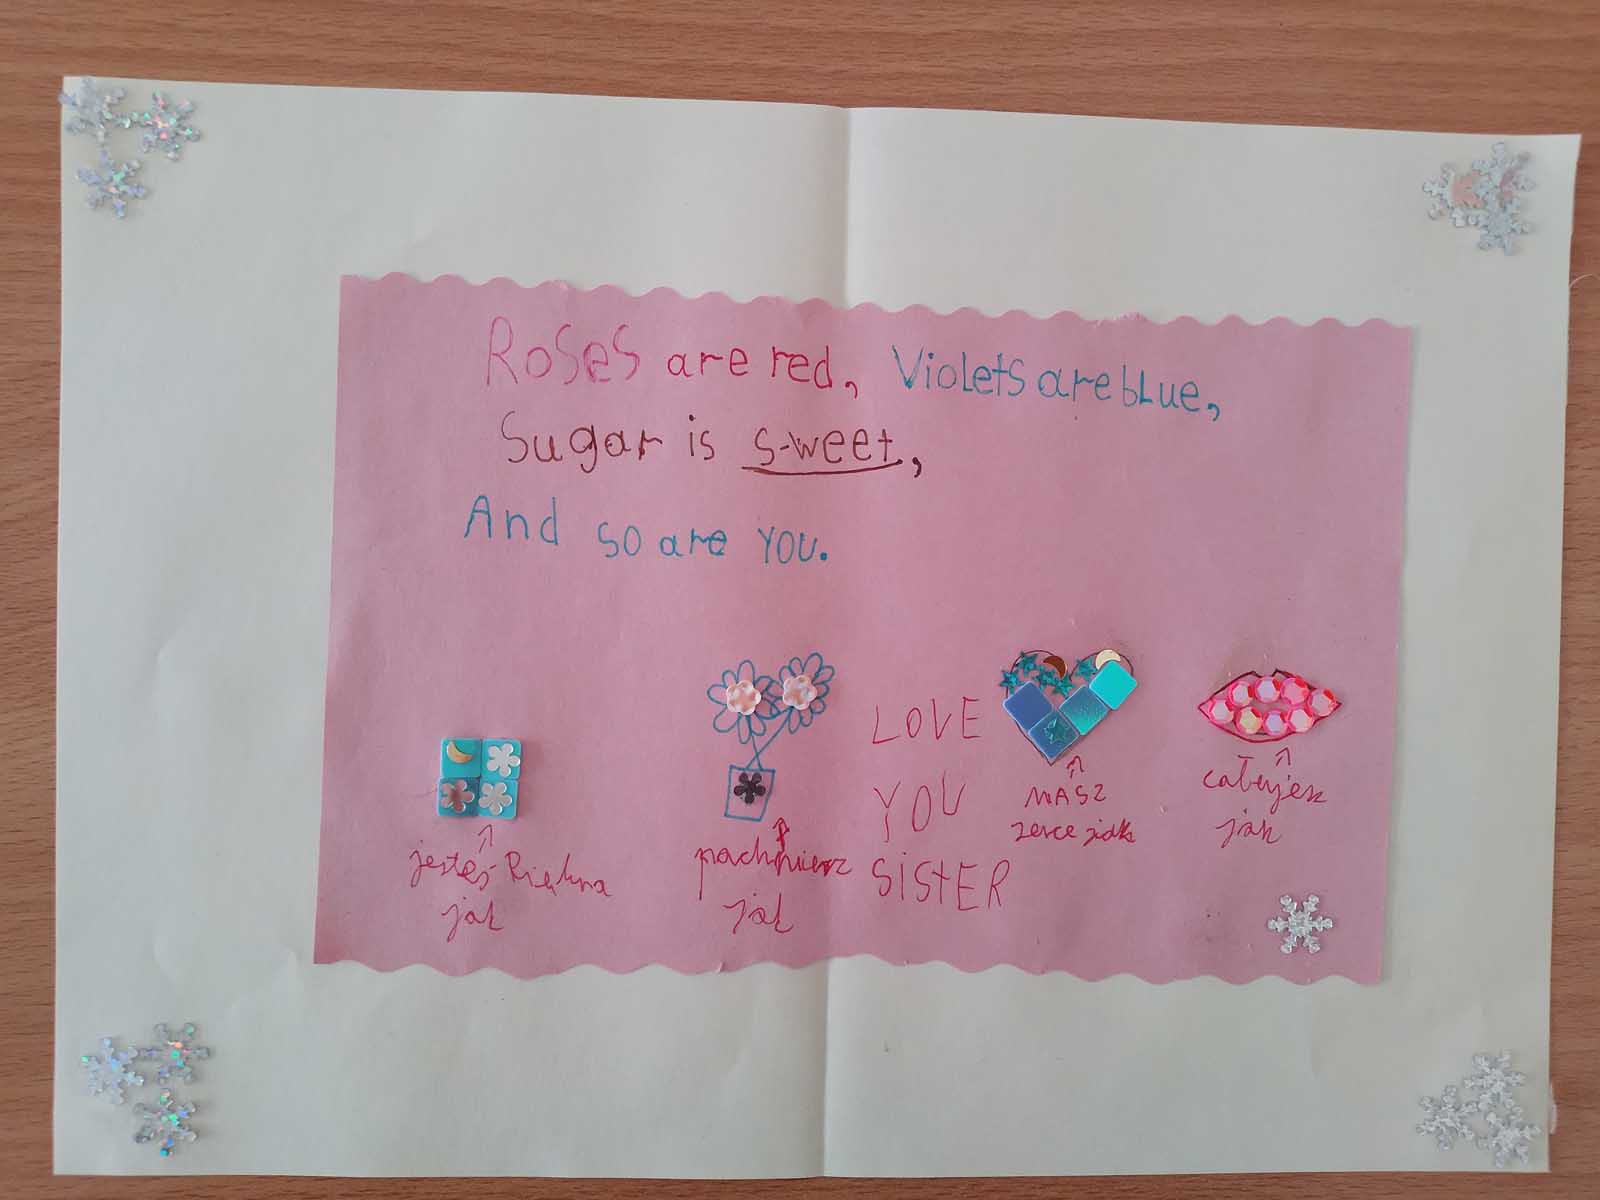 Roses are red, Violets are bLue,
Sugar is sweet,
And so are YOU.
LOVE
YOU
SiStER
jesteś Piękna
jak
pachniesz
jak
MASZ
serce jak
całujesz
jak